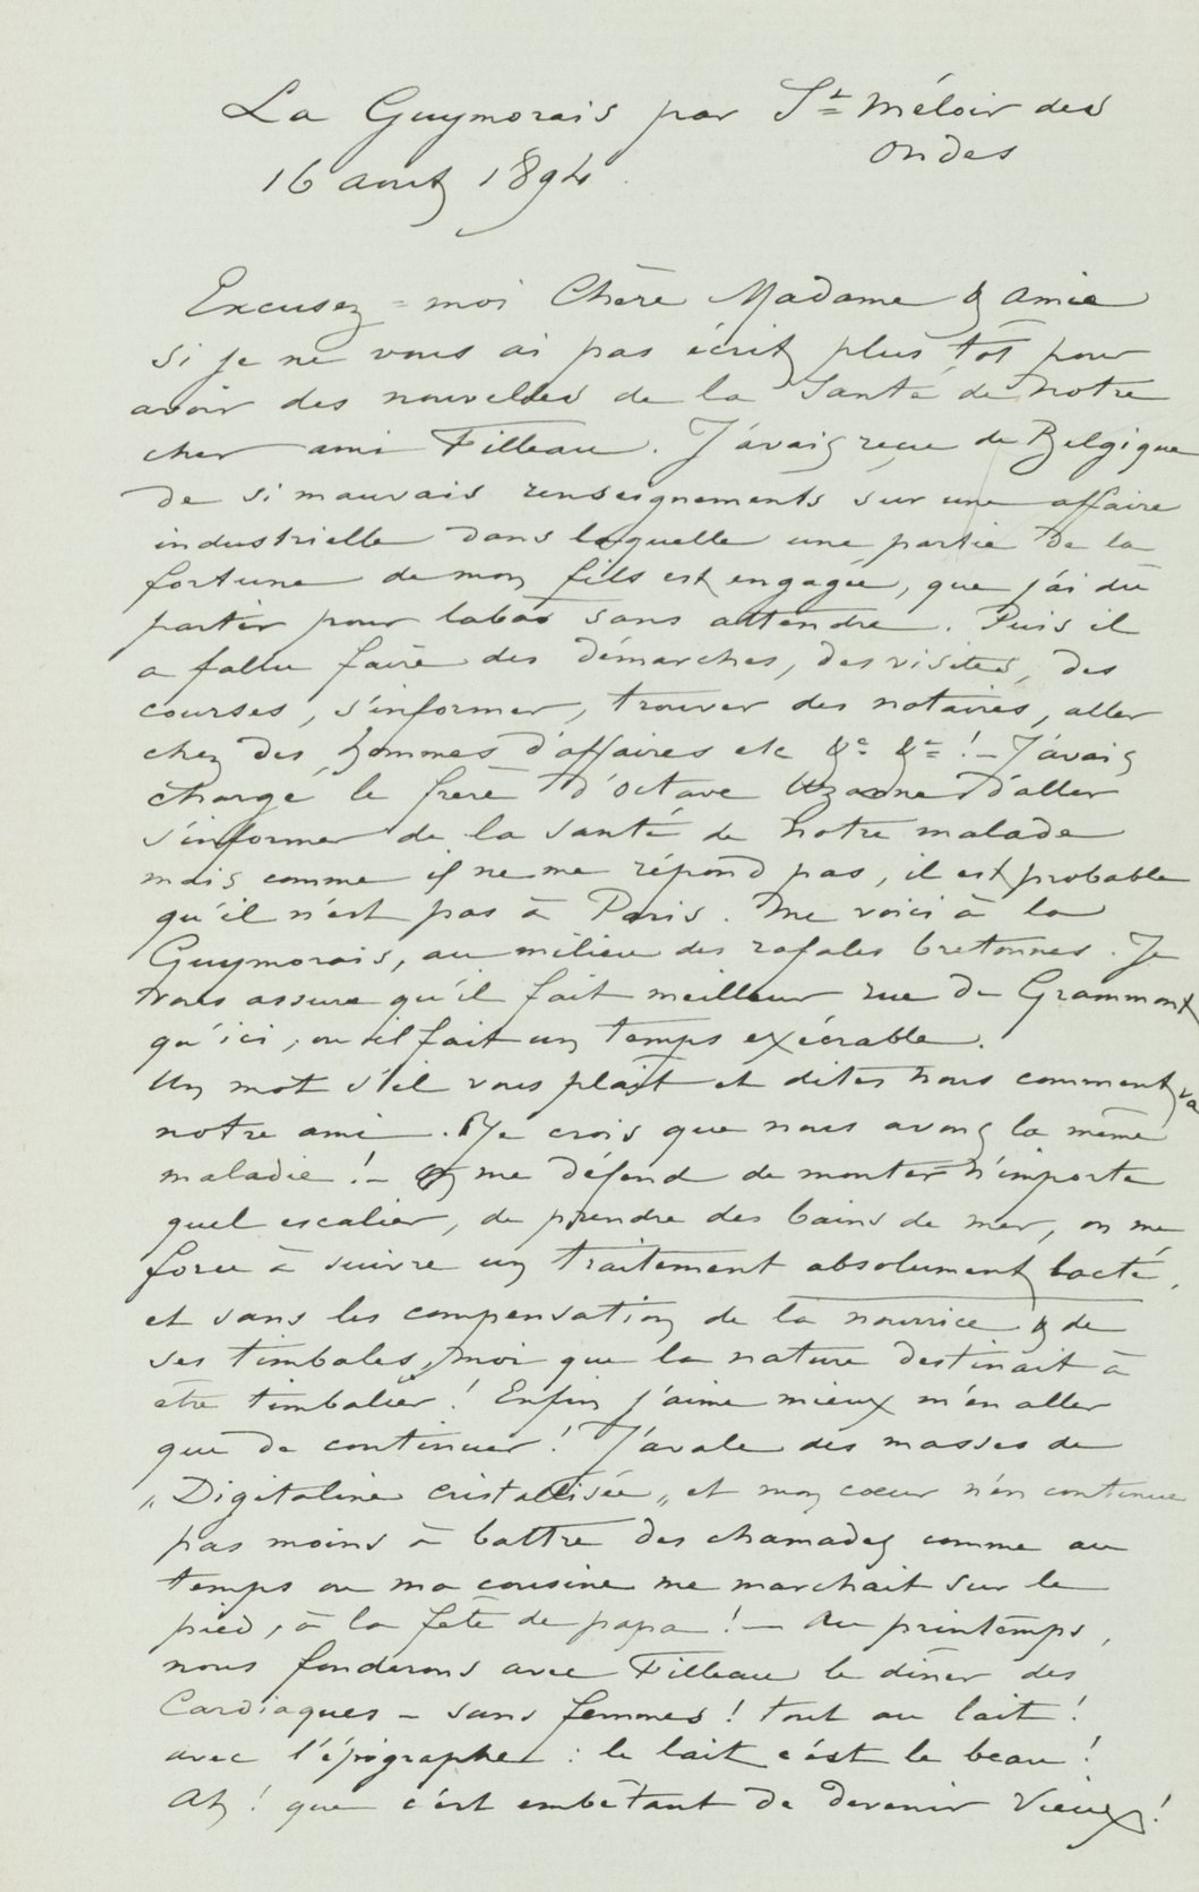 La Guymorais par St Méloir des
Ondes
16 aout 1894.
Excusez-moi Chère Madame & amie
si je ne vous ai pas écrit plus tôt pour
avoir des nouvelles de la Santé de notre
cher ami Filleau. J'avais reçu de Belgique
de si mauvais renseignements sur une affaire
industrielle dans laquelle une partie de la
fortune de mon fils est engagée, que j'ai dû
partir pour labas sans attendre. Puis il
a fallu faire des démarches, des visites, des
courses, s'informer, trouver des notaires, aller
chez des hommes d'affaires etc &a &a ! — J'avais
chargé le frère d'Octave Uzanne d'aller
s'informer de la santé de notre malade
mais comme il ne me répond pas, il est probable
qu'il n'est pas à Paris. Me voici à la
Guymorais, au milieu des rafales bretonnes. Je
vous assure qu'il fait meilleur rue de Grammont
qu'ici, ou il fait un temps exécrable.
Un mot s'il vous plaît et dites nous comment va
notre ami. Je crois que nous avons la même
maladie ! — On me défend de monter n'importe
quel escalier, de prendre des bains de mer, on me
force à suivre un traitement absolument lacté,
et sans les compensation de la nourrice & de
ses timbales, moi que la nature destinait à
être timbalier ! Enfin j'aime mieux m'en aller
que de continuer ! J'avale des masses de
„Digitaline cristallisée„ et mon coeur n'en continue
pas moins à battre des chamades comme au
temps ou ma cousine me marchait sur le
pied, à la fête de papa ! — Au printemps,
nous fonderons avec Filleau le dîner des
Cardiaques — sans femmes ! tout au lait !
avec l'épigraphe : le lait c'est le beau !
Ah ! que c'est embêtant de devenir Vieux !